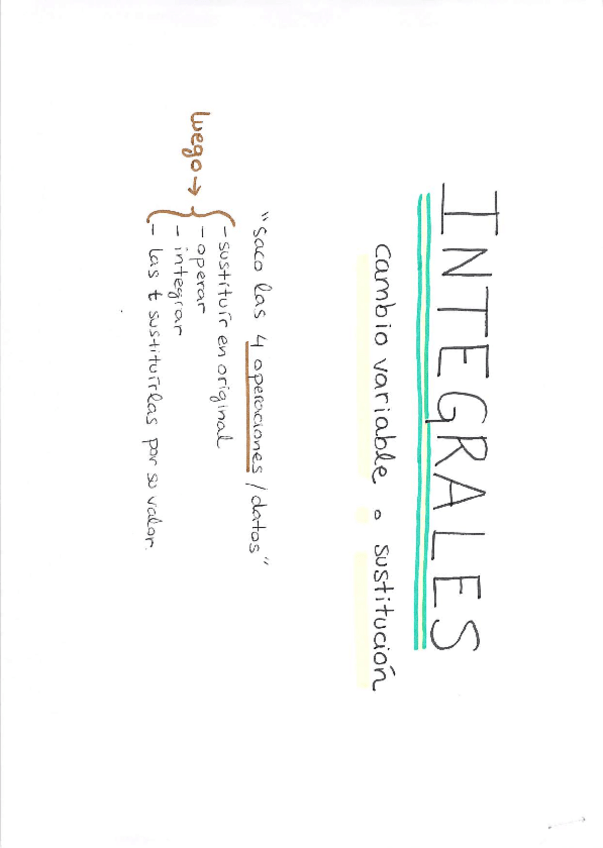 INTEGRALES
cambio variable o sustitución
"saco las 4 operaciones / datos"
luego → - sustituir en original
- operar
- integrar
- las t sustituirlas por su valor.